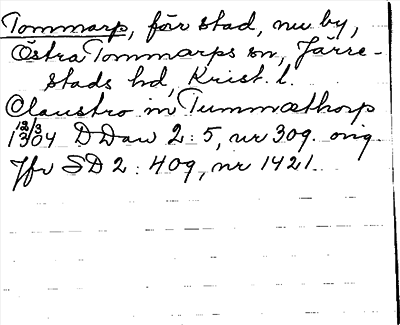 Tommarp, förr stad, nu by,
Östra Tommarps sn, Järre-
stads hd, Krist. l.
Claustro in Tummæthorp
12/3 1304 DDan 2:5, nr 309. orig.
Jfr SD 2:409, nr 1421.